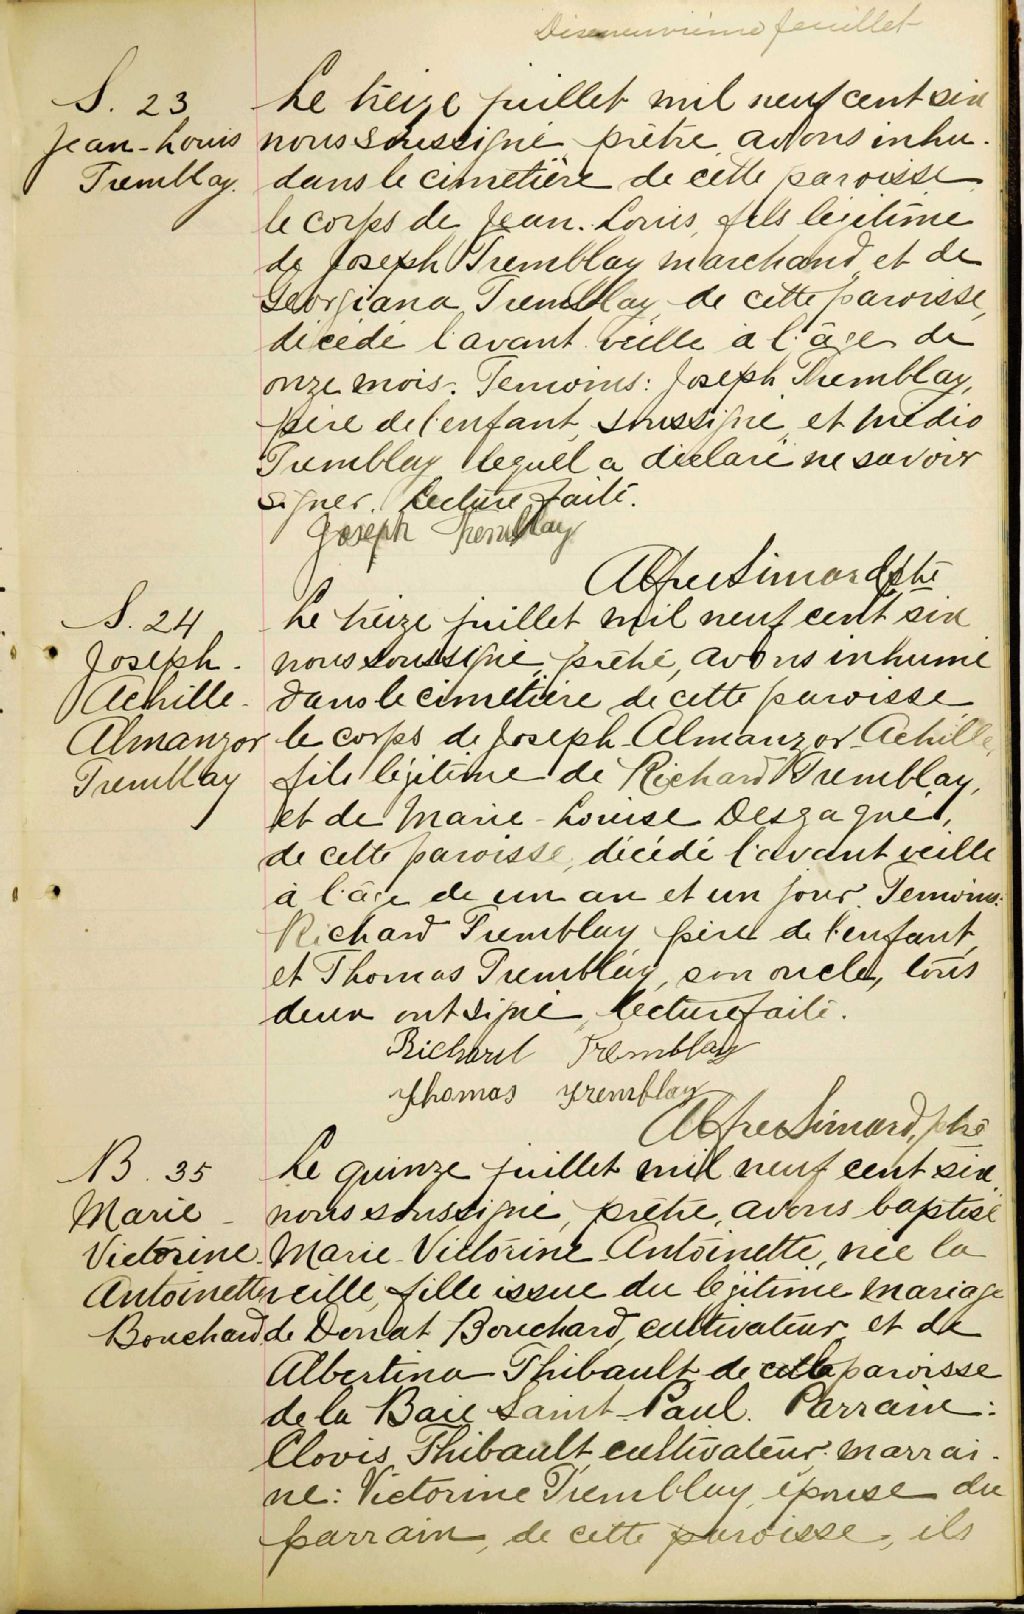 Dixneuvième feuillet
S. 23
Jean-Louis
Tremblay.
Le treize juillet mil neuf cent six
nous soussigné prêtre, avons inhu-
dans le cimetière de cette paroisse
le corps de Jean-Louis, fils légitime
de Joseph Tremblay marchand, et de
Georgiana Tremblay, de cette paroisse,
décédé l'avant veille à l'âge de
onze mois. Temoins: Joseph Tremblay,
père de l'enfant, soussigné, et Médio
Tremblay lequel a déclaré ne savoir
signer. Lecture faite.
Joseph Tremblay
Alfred Simard Ptre
S. 24
Joseph-
Achille-
Almanzor
Tremblay
Le treize juillet mil neuf cent six
nous soussigné, prêtre, avons inhumé
dans le cimetière de cette paroisse
le corps de Joseph-Almanzor-Achille,
fils légitime de Richard Tremblay,
et de Marie-Louise Desgagné,
de cette paroisse, décédé l'avant veille
à l'âge de un an et un jour. Temoins:
Richard Tremblay, père de l'enfant,
et Thomas Tremblay, son oncle, tous
deux ont signé, lecture faite.
Richard Tremblay
Thomas Tremblay
Alfred Simard, ptre
B. 35
Marie-
Victorine-
Antoinette
Bouchard
Le quinze juillet mil neuf cent six,
nous soussigné, prêtre, avons baptisé
Marie-Victorine-Antoinette, née la
veille, fille issue du légitime mariage
de Donat Bouchard, cultivateur, et de
Albertina Thibault de cette paroisse
de la Baie Saint-Paul. Parrain:
Clovis Thibault, cultivateur, marrai-
ne: Victorine Tremblay, épouse du
parrain, de cette paroisse, ils